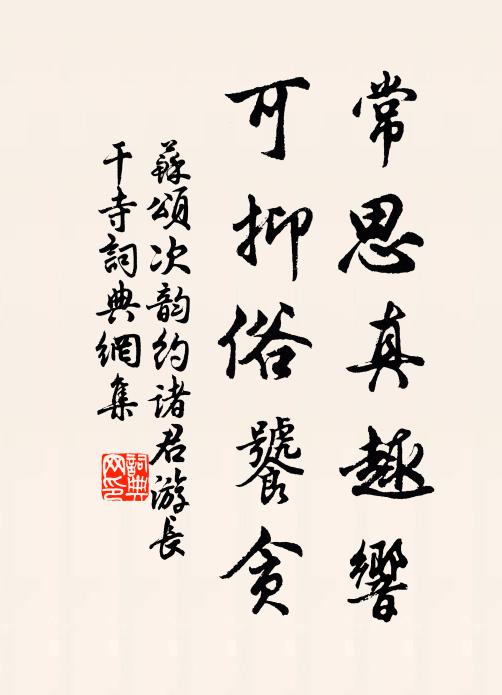 常思真趣響
可抑俗饕貪
蘇頌次韵約諸君游長
干寺詞典網集
詞典
网印